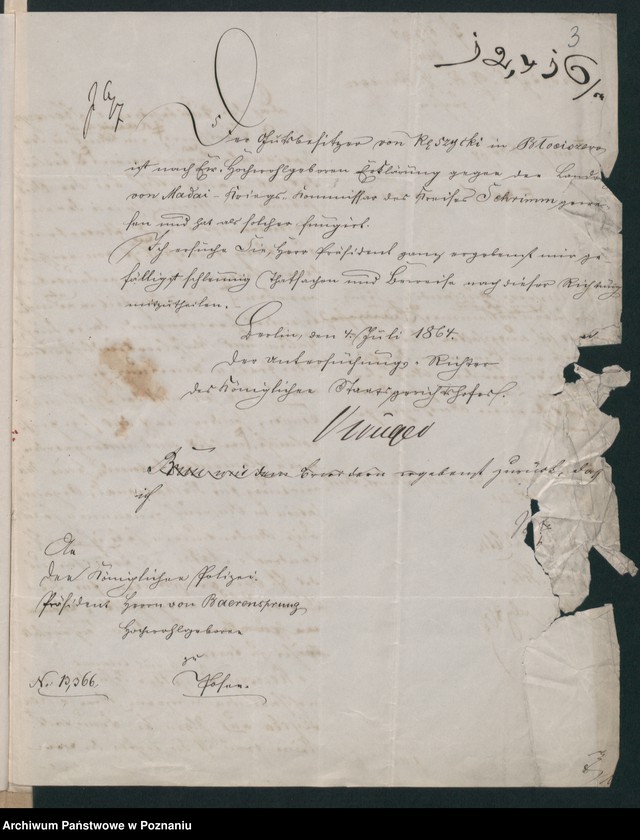 3
Der Gutsbesitzer von Ręszycki in Włościejewo
ist nach Ew. Hochwohlgeboren Erklärung gegen den Landr
von Madai - Kriegs-Kommissar des Kreises Schrimm gewe-
sen und hat als solcher fungirt.
Ich ersuche Sie, Herr Präsident ganz ergebenst mir ge-
fälligst schleunig Thatsachen und Beweise nach dieser Richtung
mitzutheilen.
Berlin, den 4. Juli 1864.
Der Untersuchungs-Richter
des Königlichen Staatsgerichtshofes.
Krüger
dem ergebenst zurück, daß
ich
An
den Königlichen Polizei-
Präsident Herrn von Baerensprung
Hochwohlgeboren
zu
No. 13,366. Posen.
Archiwum Państwowe w Poznaniu